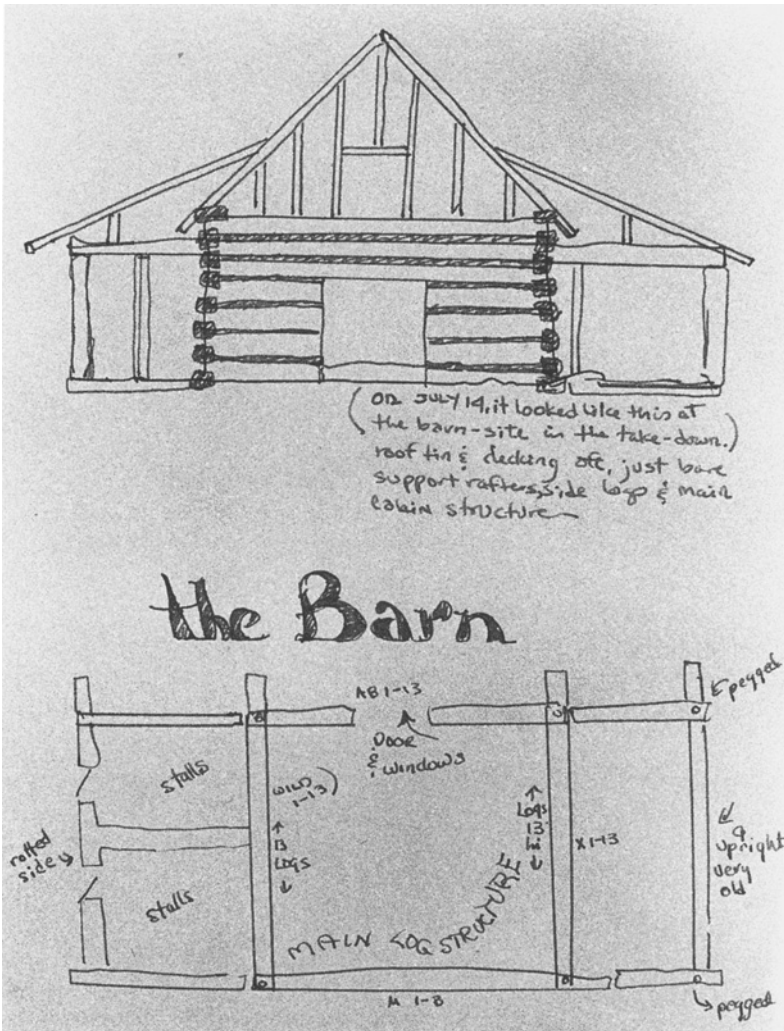 (ON JULY 14, it looked like this at
the barn-site in the take-down.)
roof tin & decking off, just bare
support rafters, side logs & main
cabin structure
the Barn
AB 1-13
pegged
DOOR
& windows
stalls
1-13)
13
LOGS
LOGS
13
X 1-13
rotted
side
upright
very
old
stalls
MAIN LOG STRUCTURE
pegged